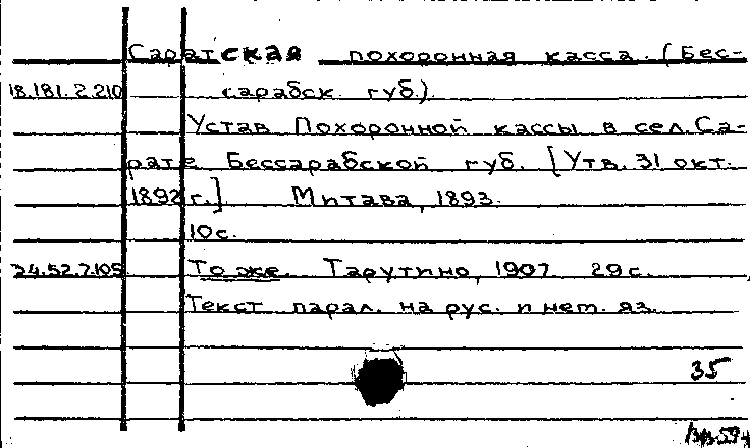 Саратская похоронная касса. (Бес-
18.181.2.210 сарабск. губ.)
Устав Похоронной кассы в сел. Са-
рате Бессарабской губ. [Утв. 31 окт.
1892 г.] Митава, 1893.
10 с.
34.52.7.105 То же. Тарутино, 1907 29 с.
Текст парал. на рус. и нем. яз.
35